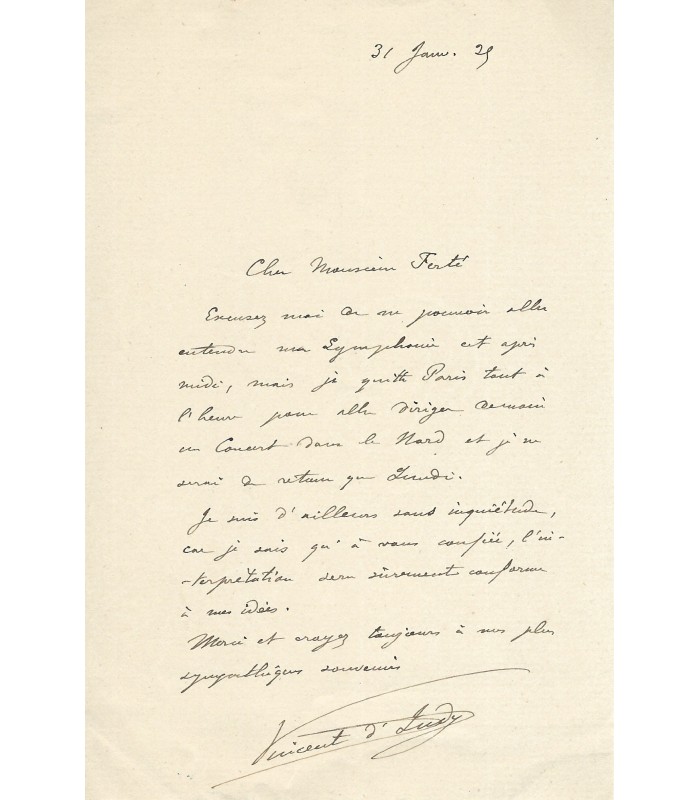 31 Janv. 25
Cher Monsieur Ferté
Excusez moi de ne pouvoir aller
entendre ma Symphonie cet après
midi, mais je quitte Paris tout à
l'heure pour aller diriger demain
un Concert dans le Nord et je ne
serai de retour que Lundi.
Je suis d'ailleurs sans inquiétude,
car je sais qu'à vous confiée, l'in-
-terprétation sera sûrement conforme
à mes idées.
Merci et croyez toujours à mes plus
sympathiques souvenirs
Vincent d'Indy